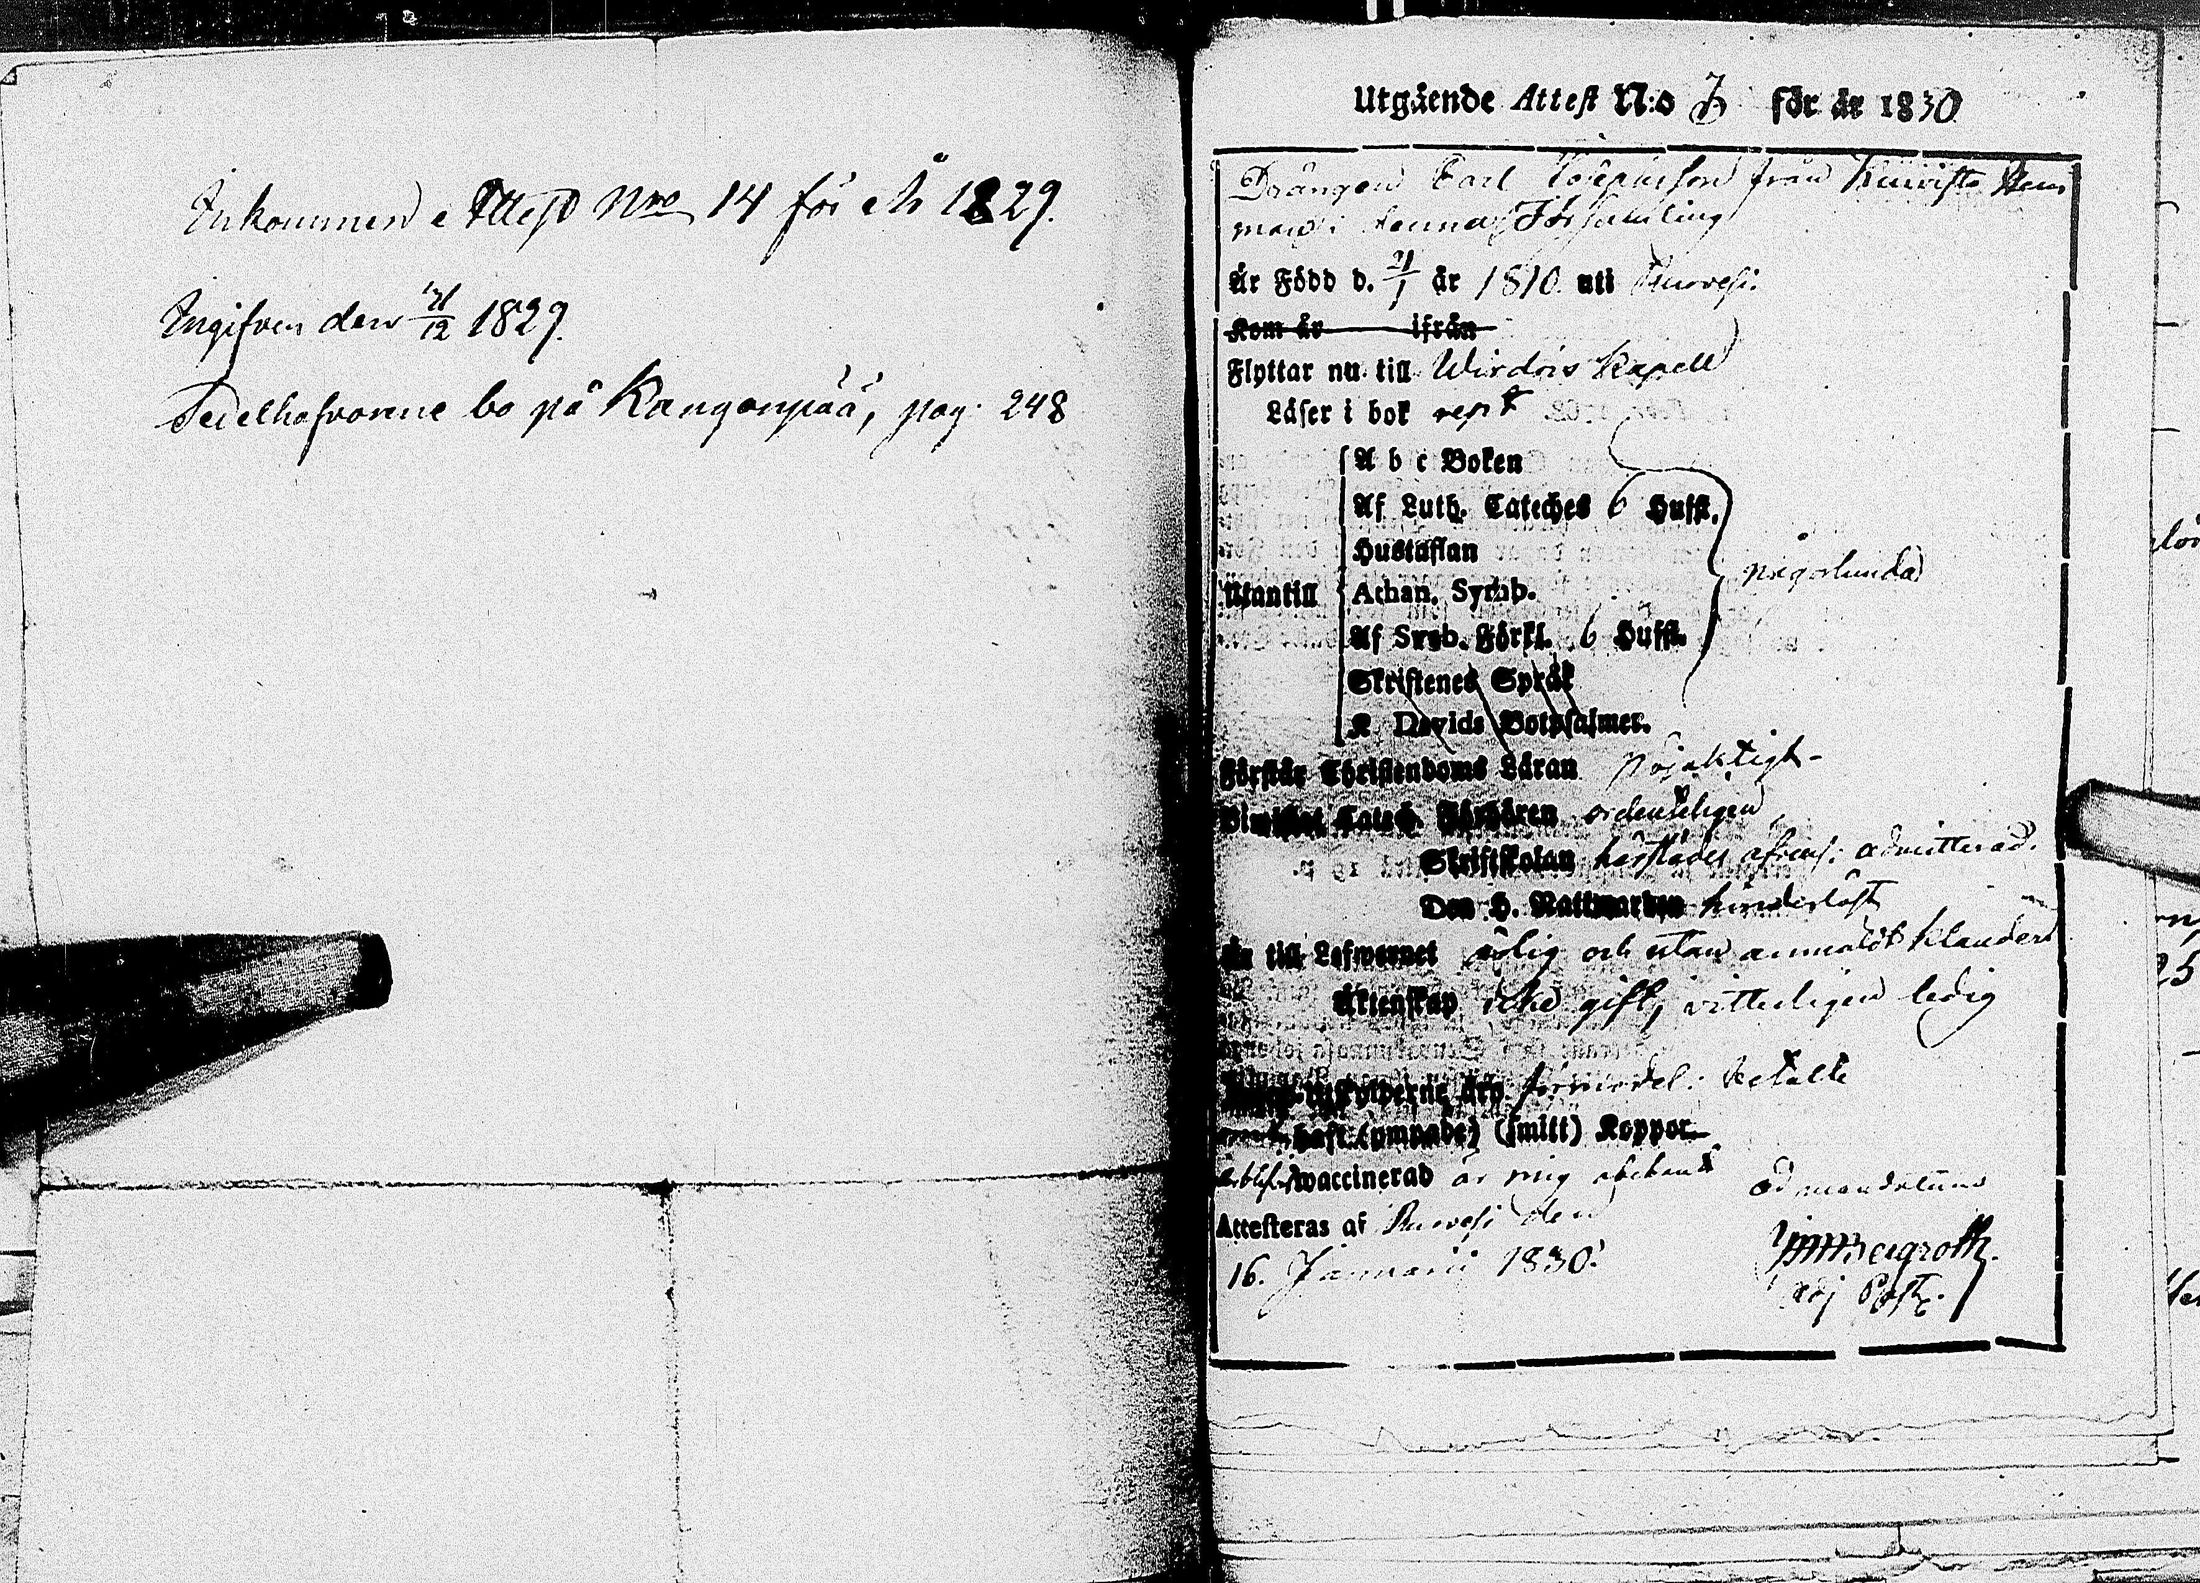 Inkommen e Attest Nro 14 för år 1829.
Ingifven den 31/12 1829.
Sedelhafvarene bo på Kangonpää, pag. 248
Utgående Attest N:o 7 för år 1830
Drängen Carl Josephsson från Kuivisto Hem
man i denna Församling
Är Född d. 21/1 år 1810 uti Ruovesi.
Kom år ifrån
Flyttar nu till Wirdois Kapell
Läser i bok
A b c Boken
Af Luth. Cateches 6 Huffst.
Hustaflan
någorlunda
Utantill Athan. Symb.
Af Sveb. Förkl. 6 Huffst.
Skriftenes Språk
K Davids Botpsalmer.
Förstår Christendoms Läran nöjaktigt
Bivistat Catech. Förhören ordenteligen
Skriftskolan härstädes admitterad.
Den H. Nattvarden hinderlöst
Än till Lefwernet ärlig och utan anmäldt klander
Äktenskap icke gift, vitterligen ledig
förmodel. betalte
haft (ympade) (smitt) Koppor
waccinerad är mig obekant
Attesteras af Ruovesi den
16. Januarii 1830.
Bergroth.
Adj